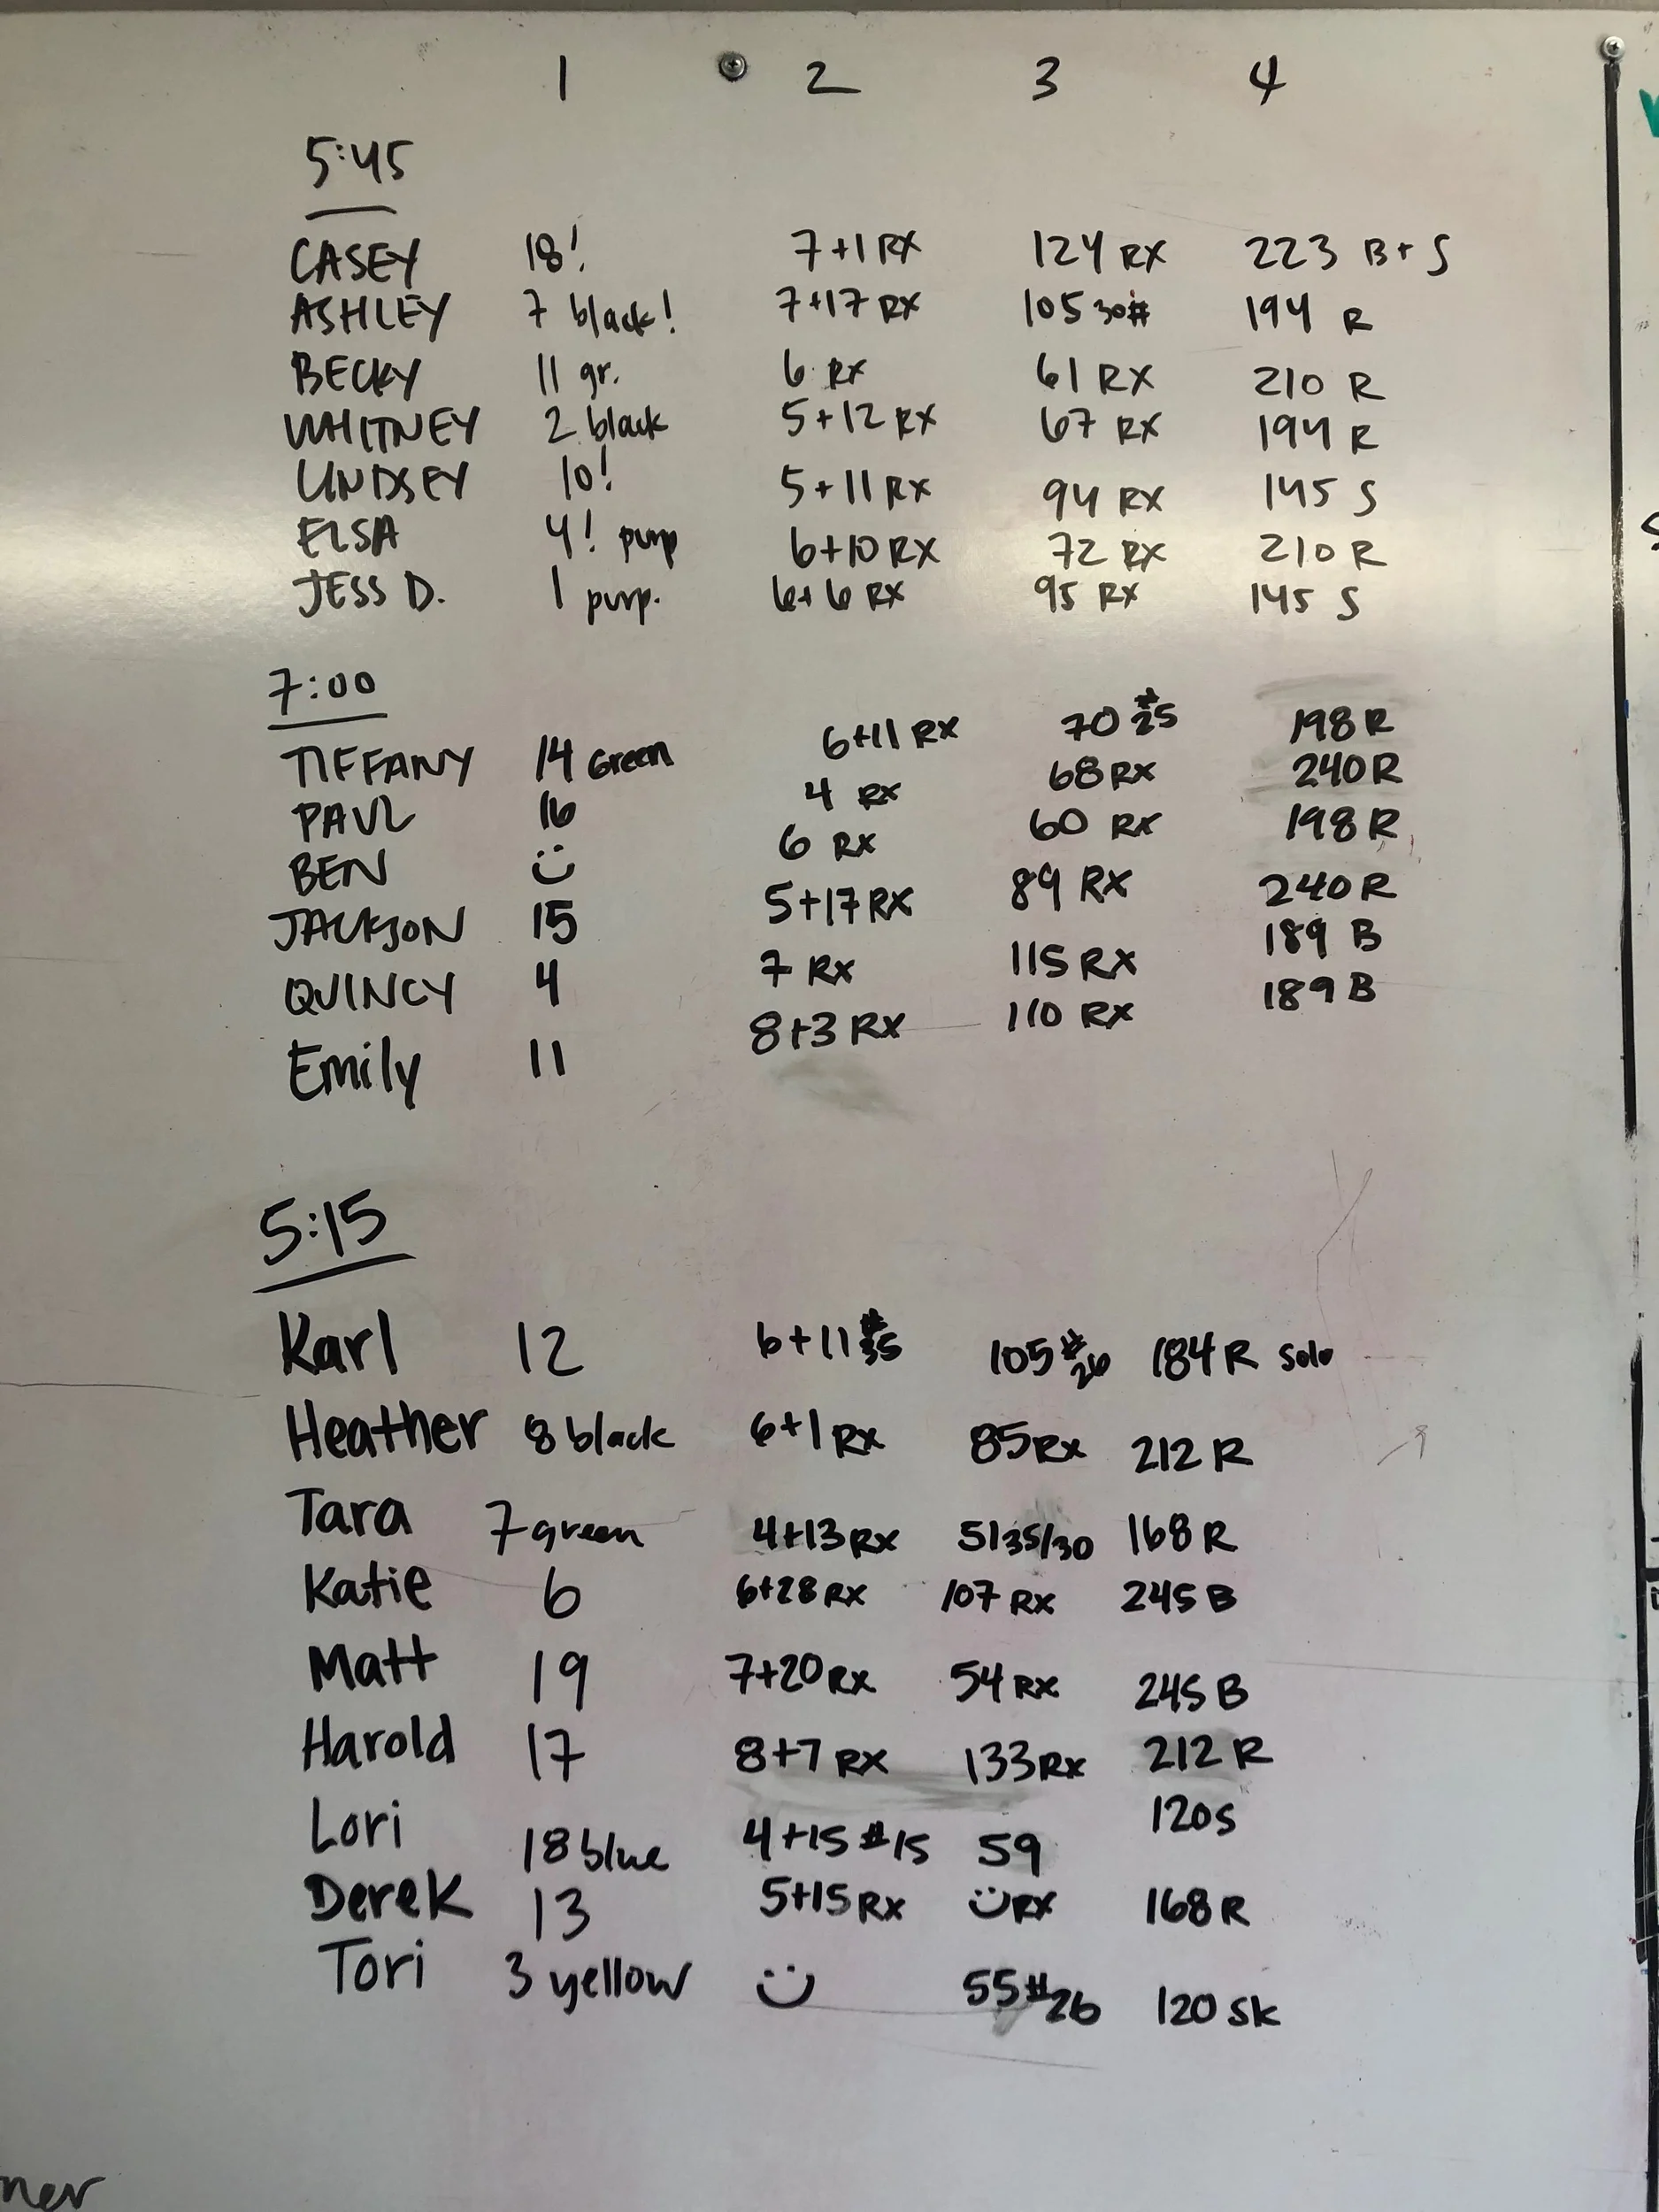 1 2 3 4
5:45
CASEY 18! 7+1 RX 124 RX 223 B+S
ASHLEY 7 black! 7+17 RX 105 30# 194 R
BECKY 11 gr. 6 RX 61 RX 210 R
WHITNEY 2 black 5+12 RX 67 RX 194 R
LINDSEY 10! 5+11 RX 94 RX 145 S
ELSA 4! purp 6+10 RX 72 RX 210 R
JESS D. 1 purp. 6+6 RX 95 RX 145 S
7:00
TIFFANY 14 Green 6+11 RX 70 #25 198 R
PAUL 16 4 RX 68 RX 240 R
BEN 6 RX 60 RX 198 R
JACKSON 15 5+17 RX 89 RX 240 R
QUINCY 4 7 RX 115 RX 189 B
Emily 11 8+3 RX 110 RX 189 B
5:15
Karl 12 6+11 #35 105 #26 184 R Solo
Heather 8 black 6+1 RX 85 RX 212 R
Tara 7 green 4+13 RX 51 35/30 168 R
Katie 6 6+28 RX 107 RX 245 B
Matt 19 7+20 RX 54 RX 245 B
Harold 17 8+7 RX 133 RX 212 R
Lori 18 blue 4+15 #15 59 120 S
Derek 13 5+15 RX RX 168 R
Tori 3 yellow 55 #26 120 SK
ner